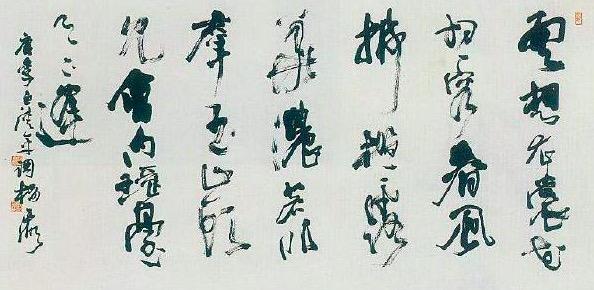 雲想衣裳花
想容春風
拂檻露
華濃若非
羣玉山頭
見會向瑤臺
月下逢
唐李白清平調